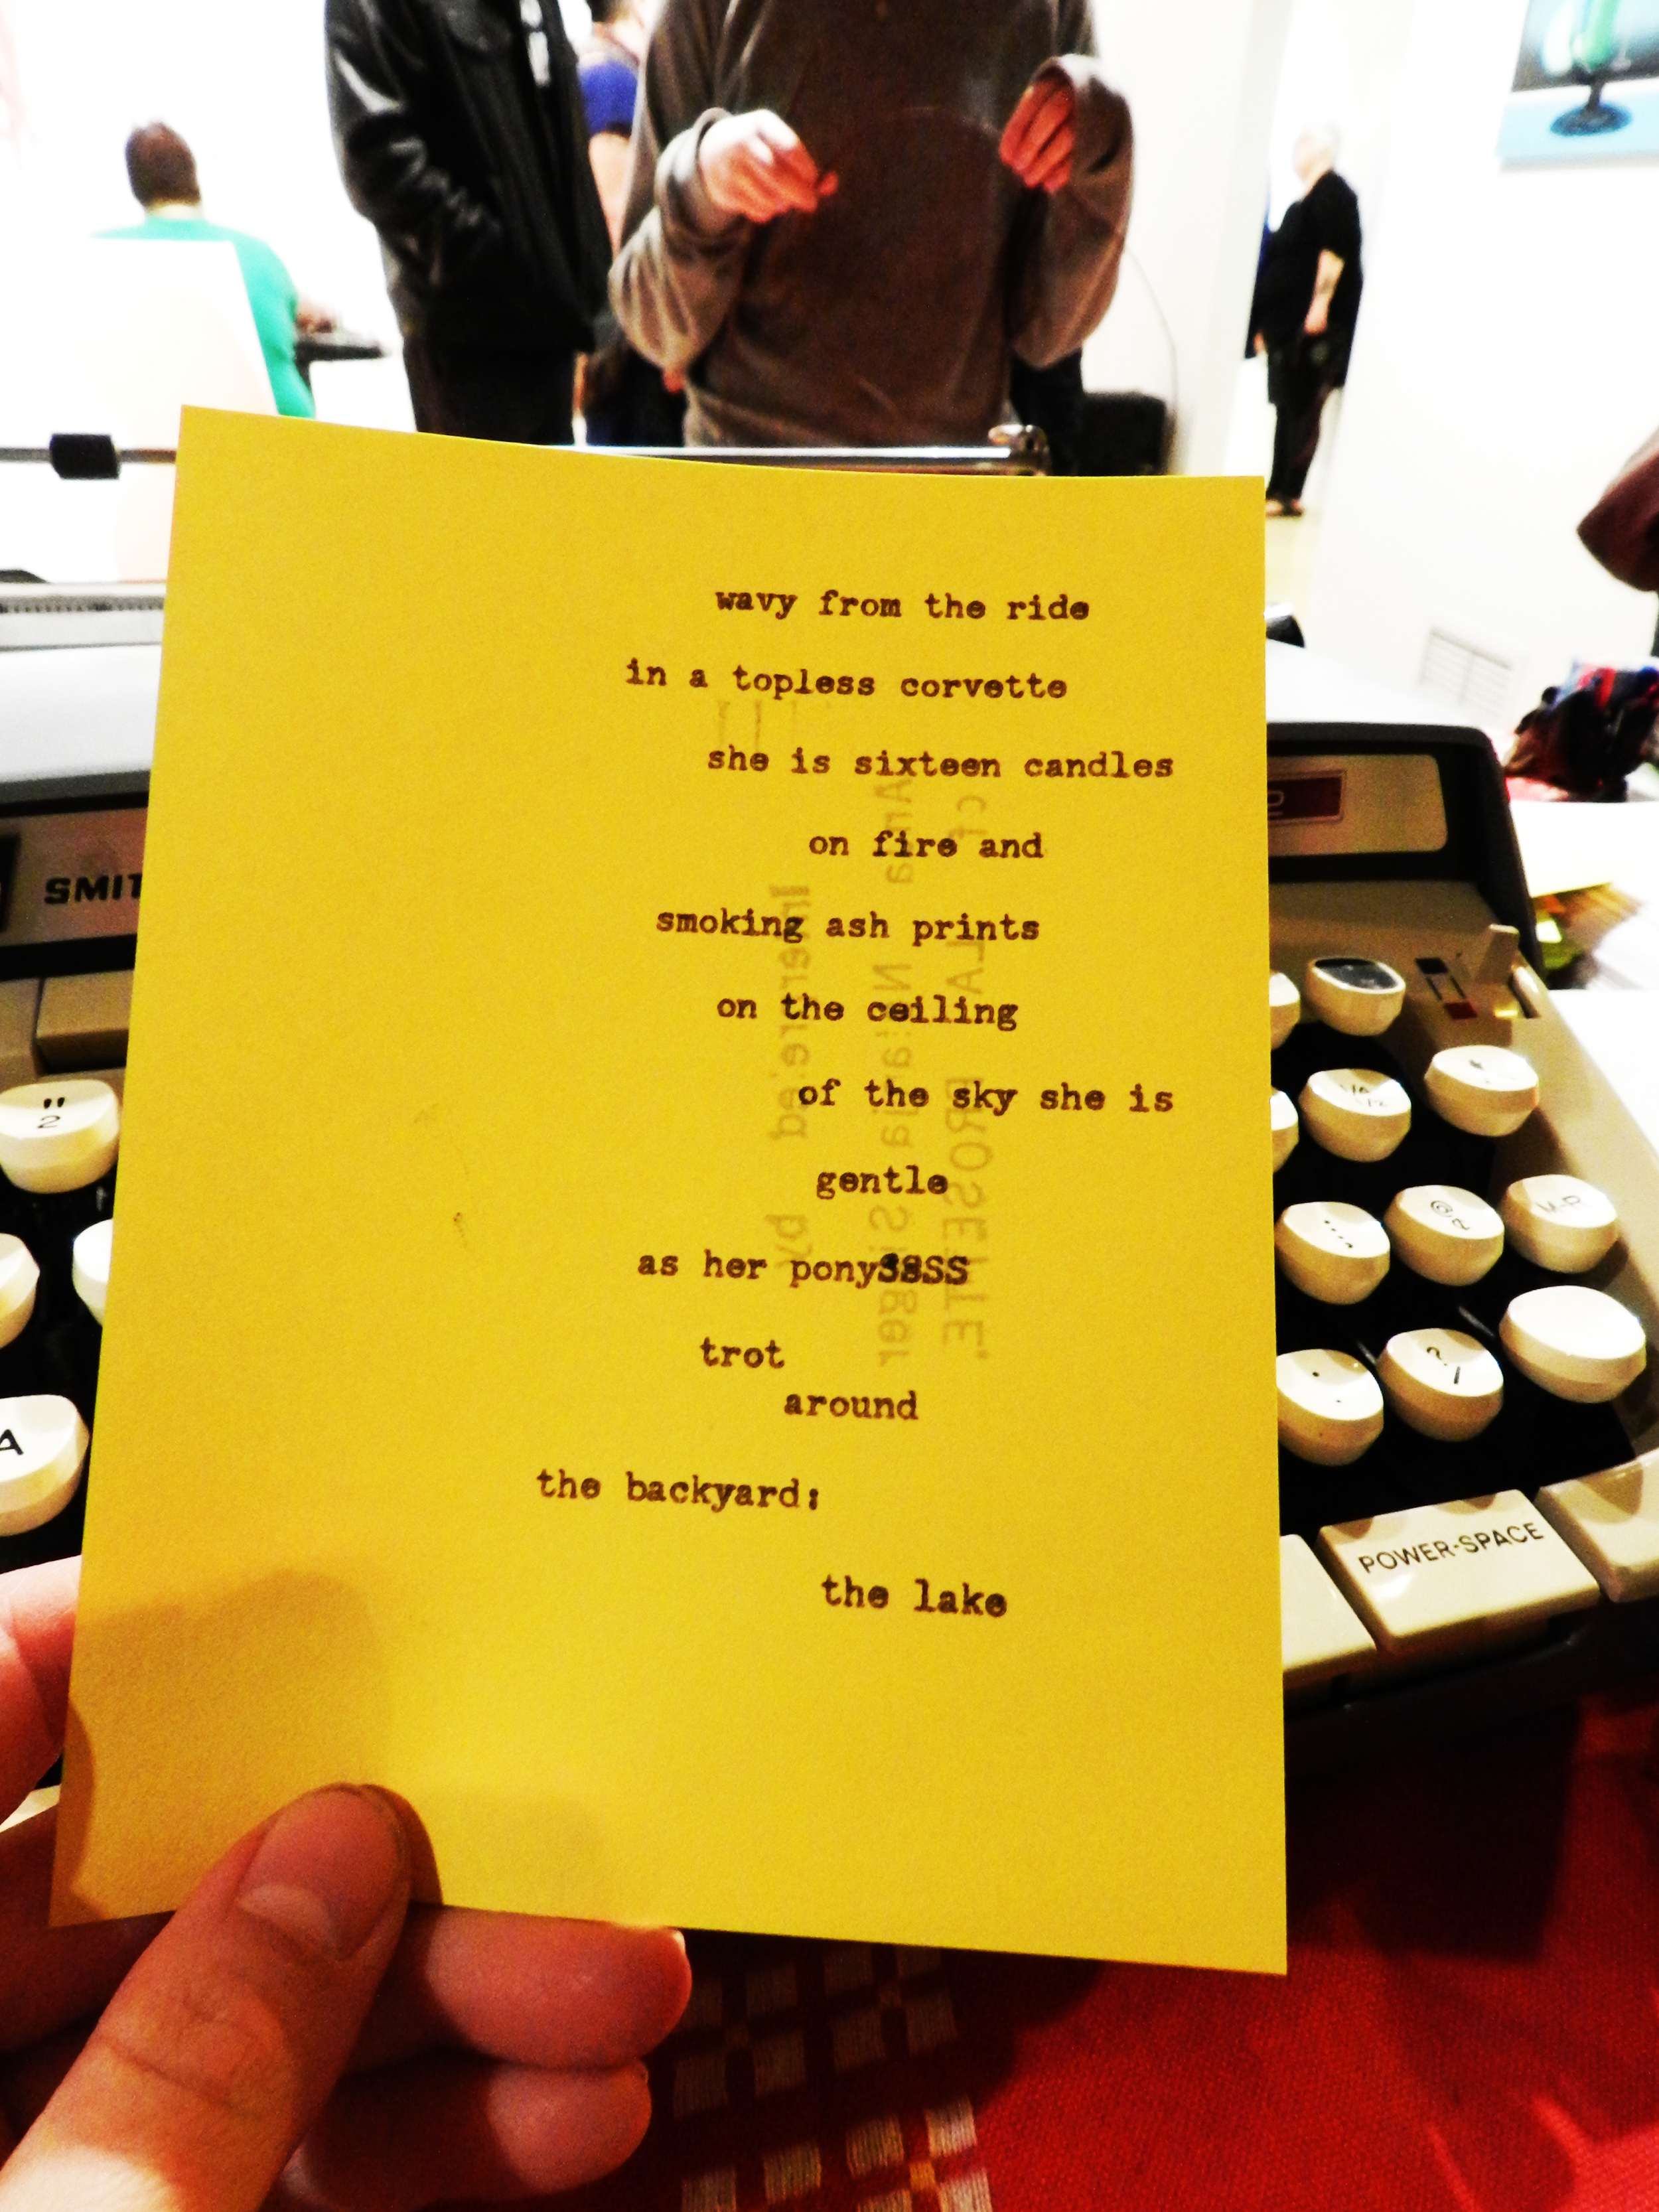 wavy from the ride
in a topless corvette
she is sixteen candles
on fire and
smoking ash prints
on the ceiling
of the sky she is
gentle
as her ponySSSS
trot
around
the backyard:
the lake
SMIT
"
2
A
1/4
1/2
@
¢
M-R
?
/
POWER-SPACE